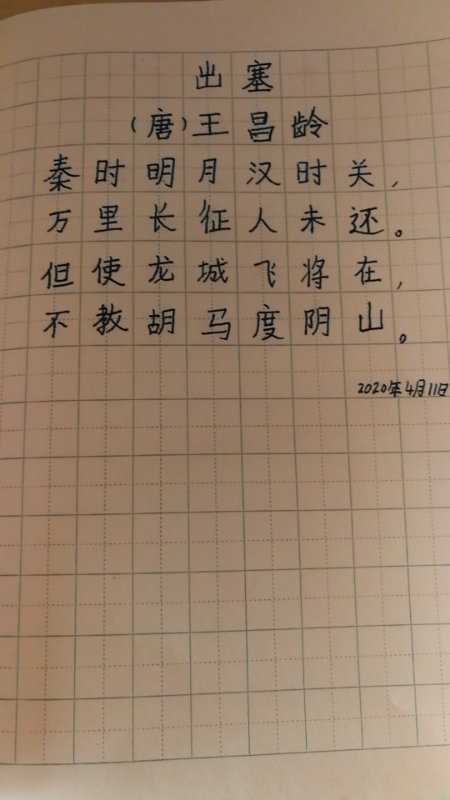 出塞
(唐)王昌龄
秦时明月汉时关,
万里长征人未还。
但使龙城飞将在,
不教胡马度阴山。
2020年4月11日